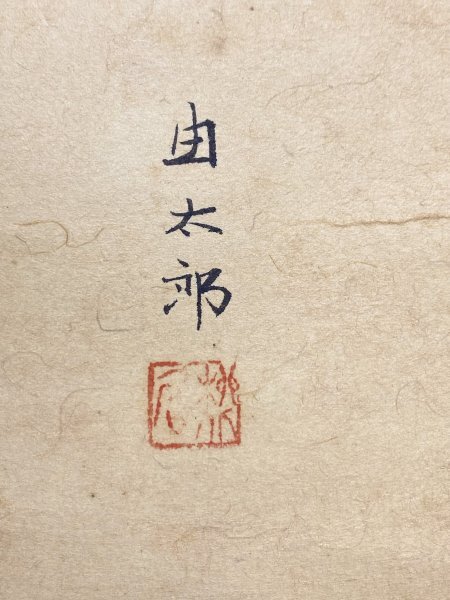 由太郎